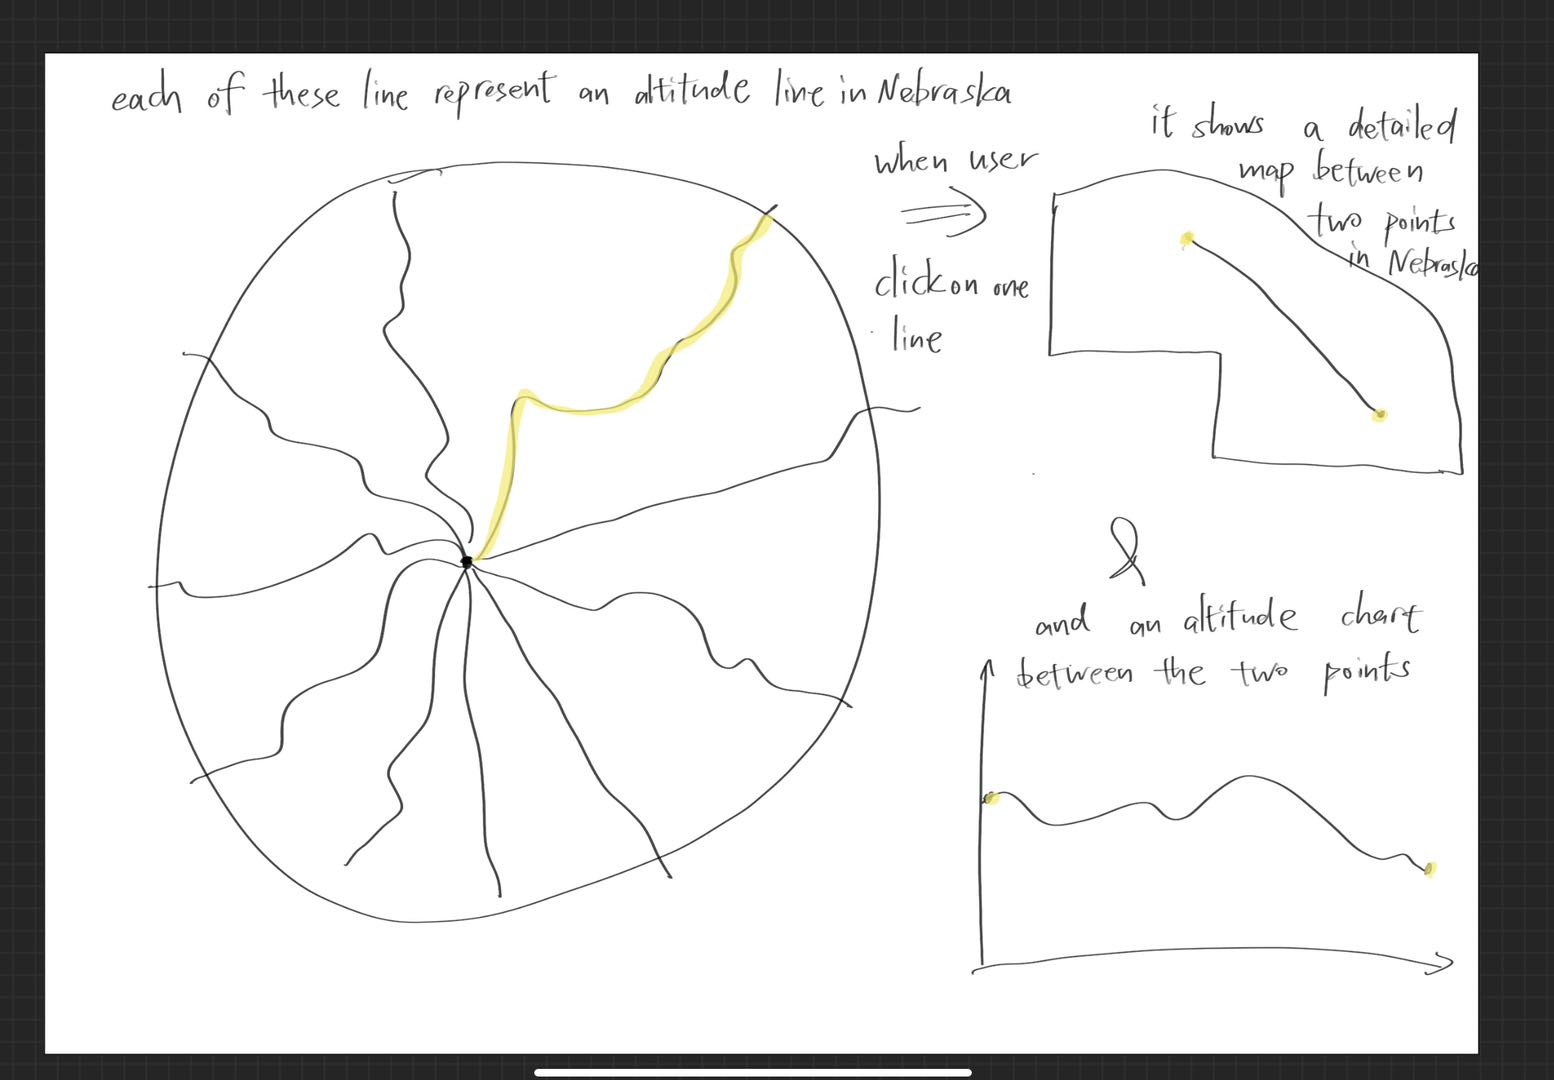 each of these line represent an altitude line in Nebraska
when user
click on one
line
it shows a detailed
map between
two points
in Nebraska
&
and an altitude chart
between the two points